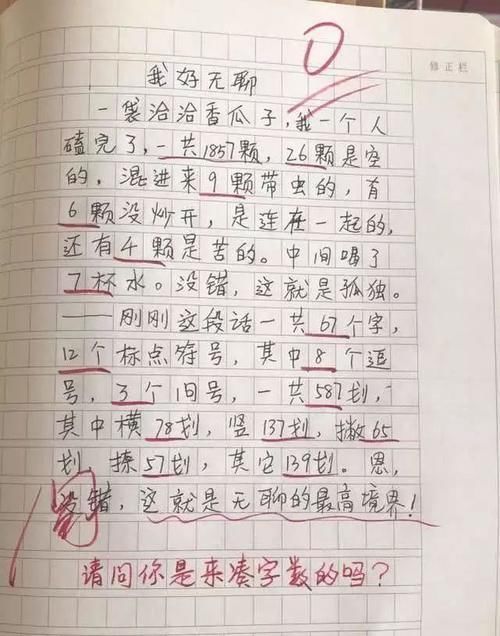 0
修正栏
我好无聊
一袋洽洽香瓜子，我一个人
磕完了，一共1857颗，26颗是空
的，混进来9颗带虫的，有
6颗没炒开，是连在一起的，
还有4颗是苦的。中间喝了
7杯水。没错，这就是孤独。
——刚刚这段话一共67个字，
12个标点符号，其中8个逗
号，3个句号，一共587划，
其中横78划，竖137划，撇65
划 捺57划，其它139划。恩，
没错，这就是无聊的最高境界！
请问你是来凑字数的吗？